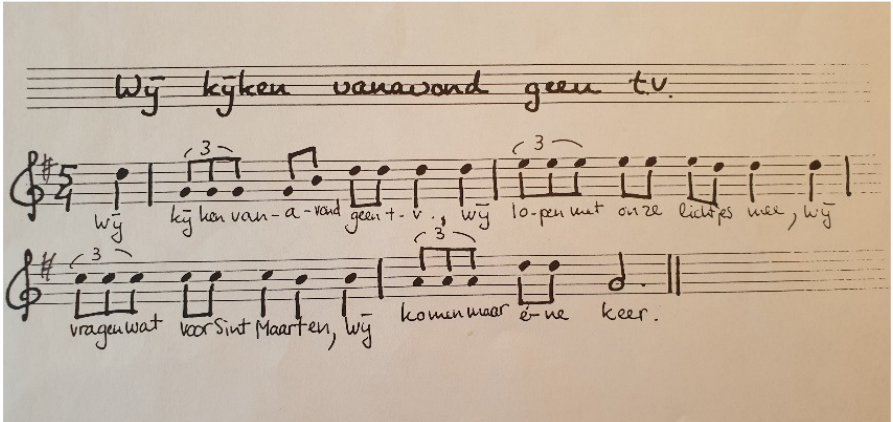 Wij kijken vanavond geen t.v.
3 3
5
4
Wij kij ken van-a-vond geen t-v., wij lo-pen met onze lichtjes mee, wij
3 3
vragen wat voor Sint Maarten, wij komen maar é-ne keer.